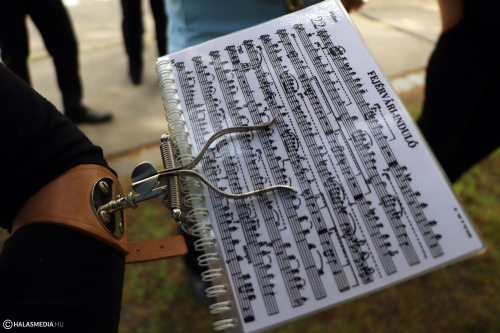 22
FEJÉRVÁRI-INDULÓ
©HALASMEDIA.HU